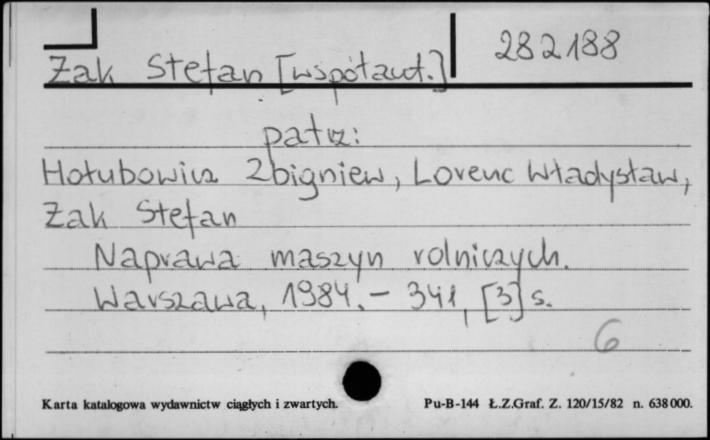 282188
Żak Stefan [współaut.]
patrz:
Hołubowicz Zbigniew, Lorenc Władysław,
Żak Stefan
Naprawa maszyn rolniczych.
Warszawa, 1984. – 341, [3] s.
6
Karta katalogowa wydawnictw ciągłych i zwartych.
Pu-B-144 Ł.Z.Graf. Z. 120/15/82 n. 638000.